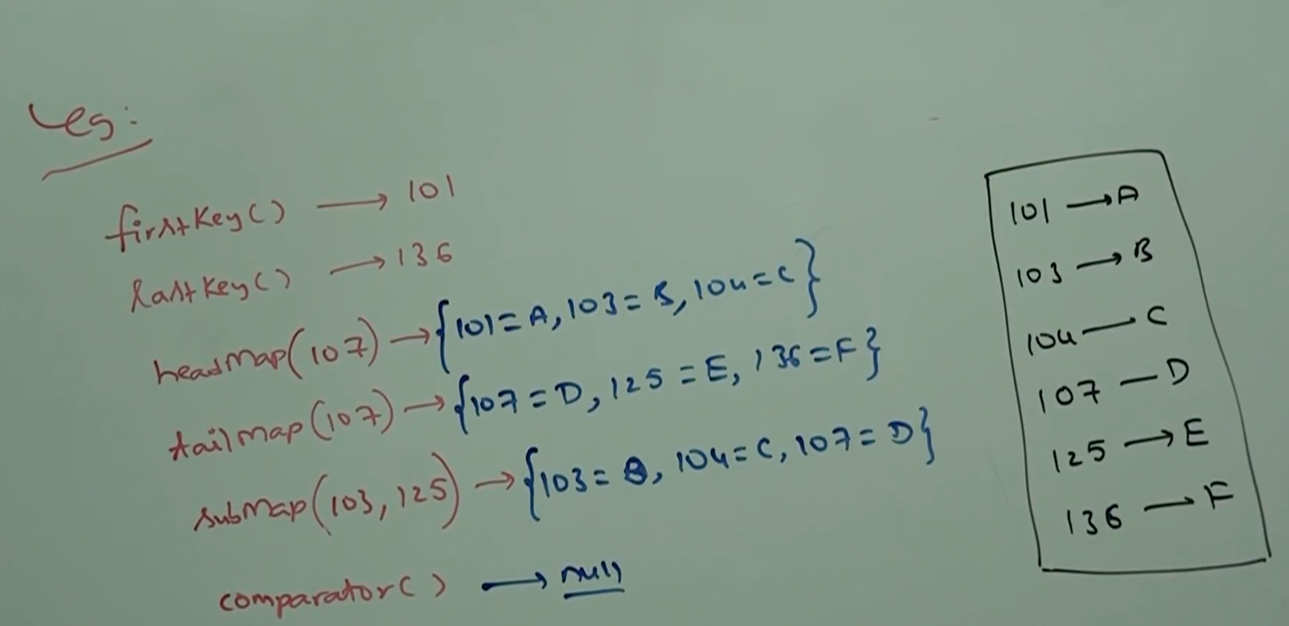 eg:
firstKey() → 101
lastKey() → 136
headMap(107) → {101=A, 103=B, 104=C}
tailMap(107) → {107=D, 125=E, 136=F}
subMap(103, 125) → {103=B, 104=C, 107=D}
comparator() → null
101 → A
103 → B
104 — C
107 — D
125 → E
136 → F